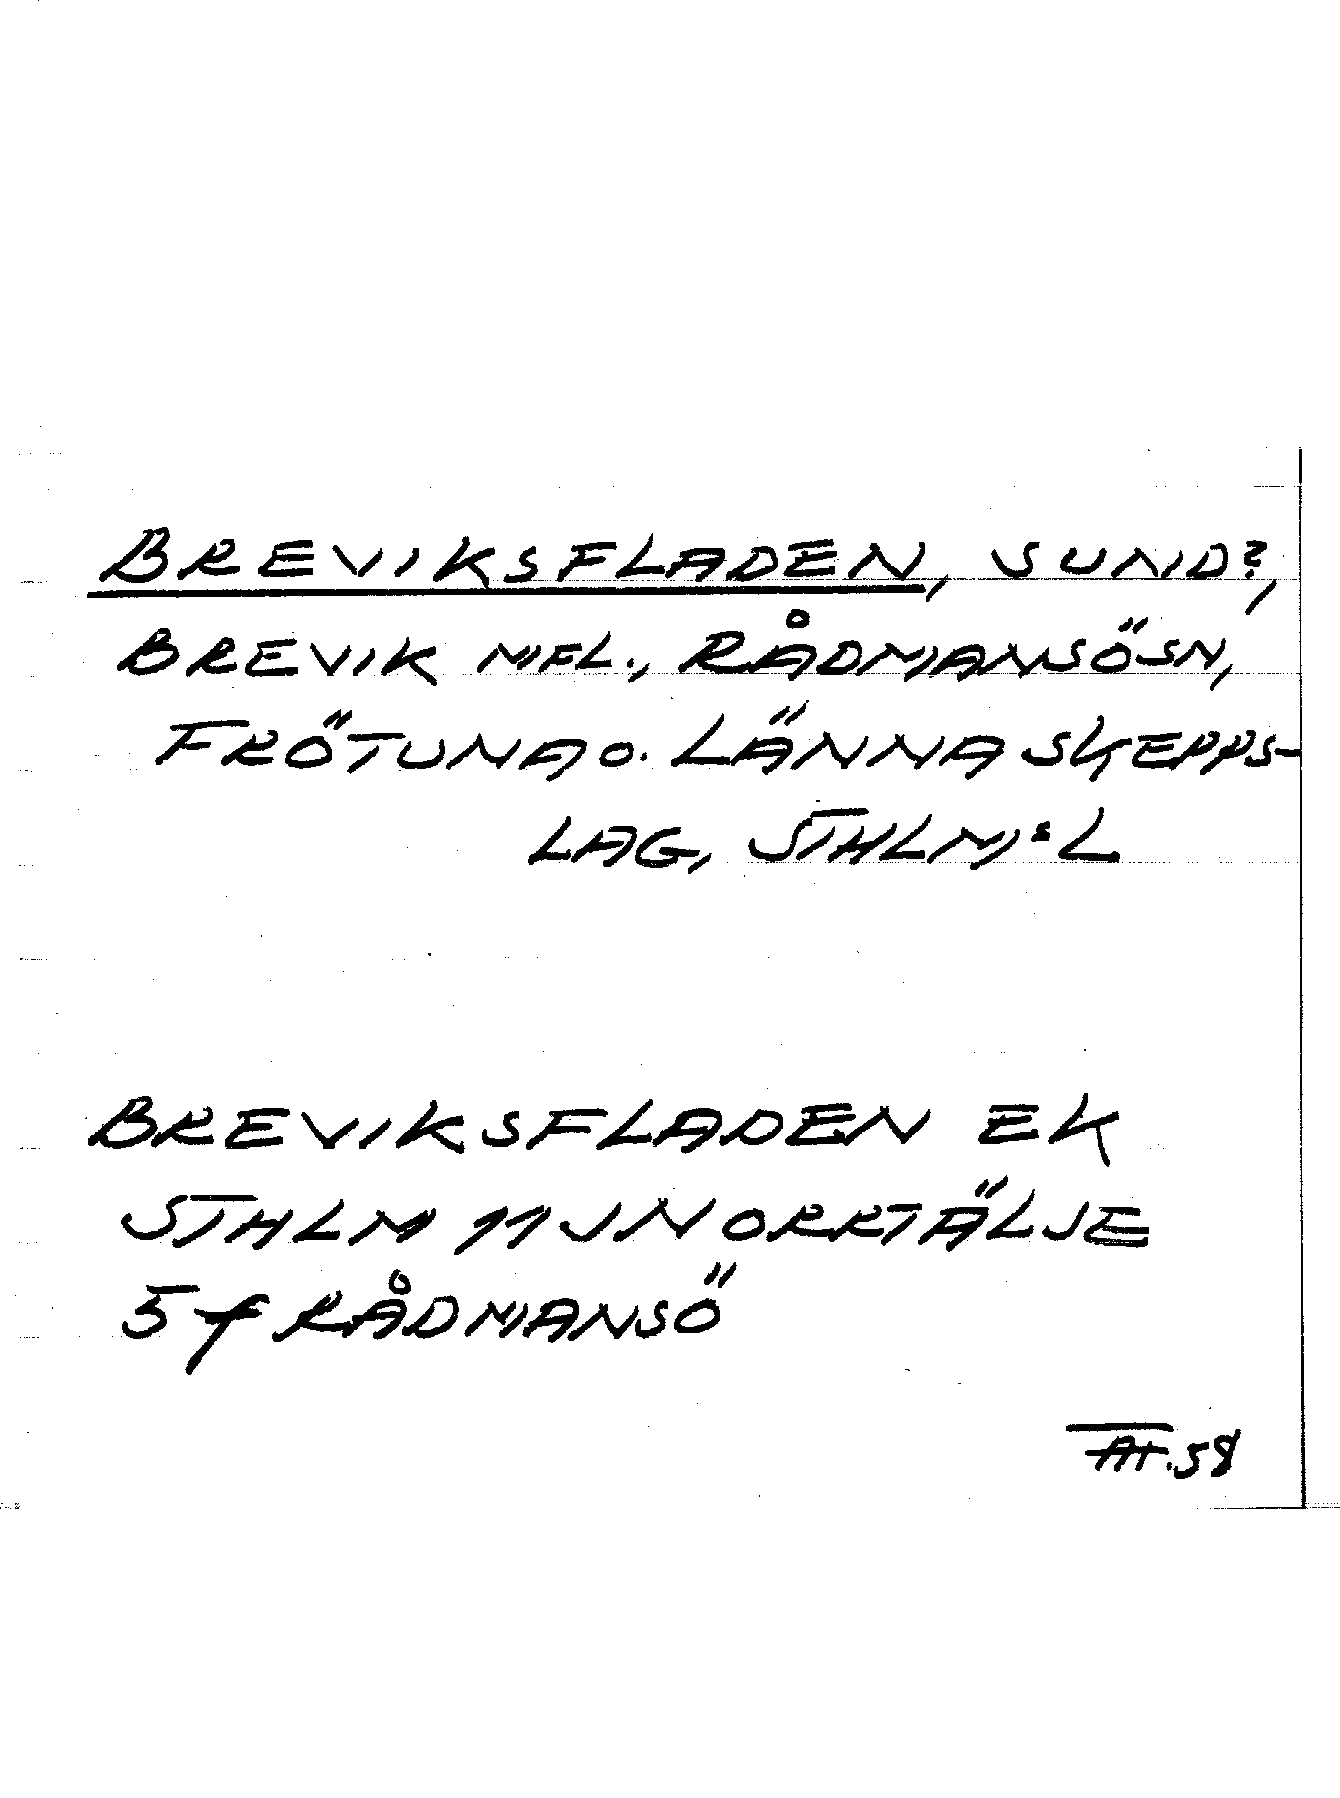 BREVIKSFLADEN, SUND?,
BREVIK MFL., RÅDMANSÖ SN,
FRÖTUNA O. LÄNNA SKEPPS-
LAG, STHLM:S L
BREVIKSFLADEN EK
STHLM 11J NORRTÄLJE
5f RÅDMANSÖ
58